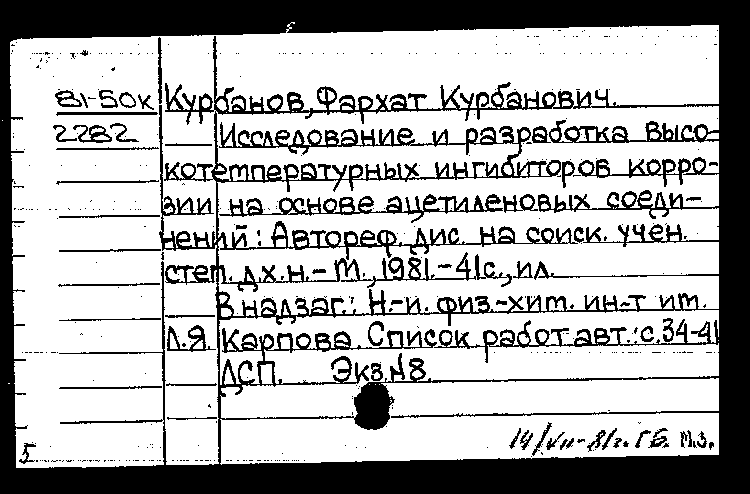 81-50к Курбанов, Фархат Курбанович.
2282 Исследование и разработка высо-
котемпературных ингибиторов корро-
зии на основе ацетиленовых соеди-
нений: Автореф. дис. на соиск. учен.
степ. д.х.н. - М., 1981. - 41с., ил.
В надзаг.: Н.-и. физ.-хим. ин-т им.
Л.Я. Карпова. Список работ авт.: с.34-41
ДСП. Экз.№8.
14/VII-81г. Г.Б. М.З.
5